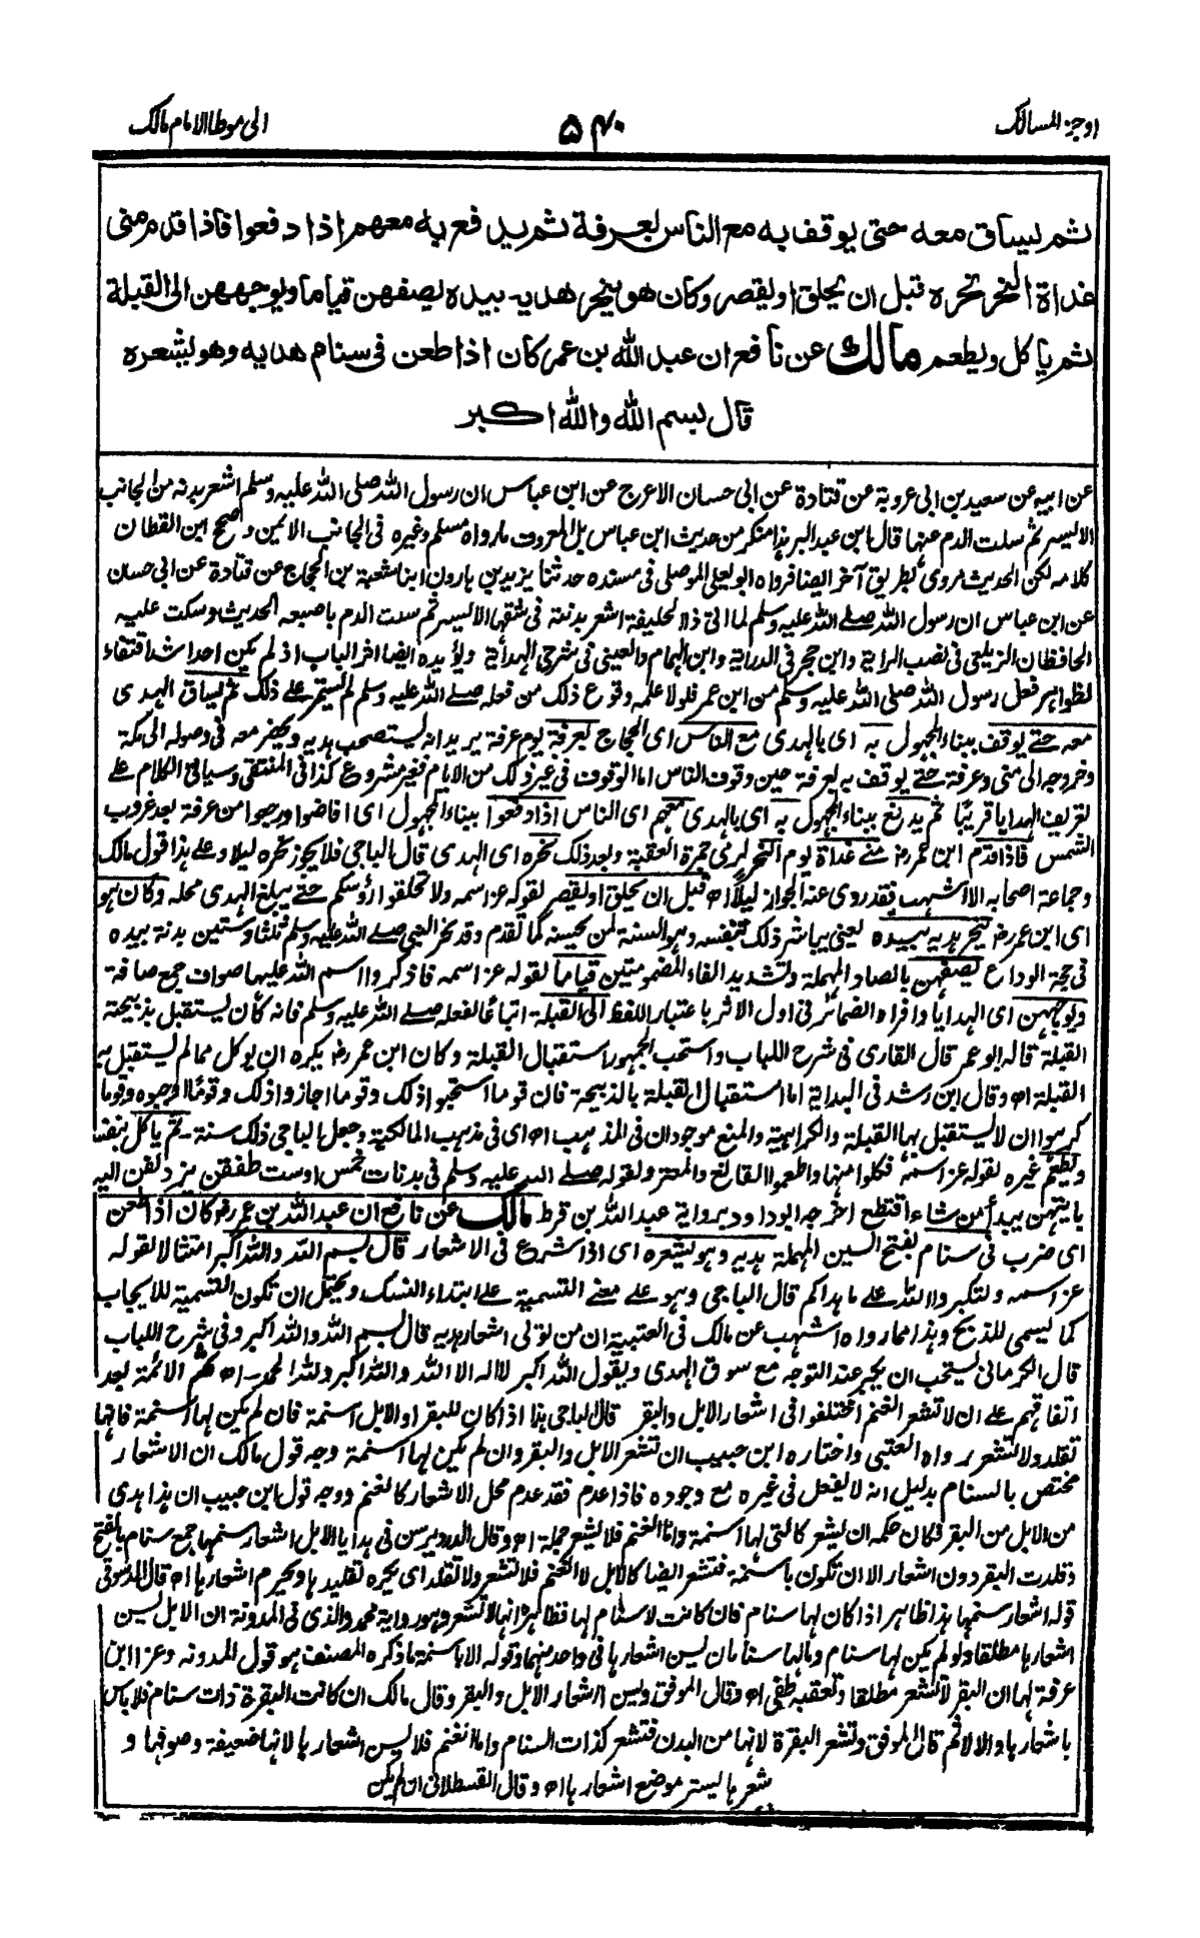 اوجز المسالك
۵۴۰
الى موطا الامام مالك
ثم يساق معه حتى يوقف به مع الناس بعرفة ثم يدفع به معهم اذا دفعوا فاذا قدم منى
غداة النحر نحره قبل ان يحلق او يقصر وكان هو ينحر هديه بيده يصفهن قياما ويوجههن الى القبلة
ثم ياكل ويطعم مالك عن نافع ان عبد الله بن عمر كان اذا طعن فى سنام هديه وهو يشعره
قال بسم الله والله اكبر
عن ابيه عن سعيد بن ابى عروبة عن قتادة عن ابى حسان الاعرج عن ابن عباس ان رسول الله صلى الله عليه وسلم اشعر بدنه من الجانب
الايسر ثم سلت الدم عنها قال ابن عبد البر هذا منكر من حديث ابن عباس بل المعروف ما رواه مسلم وغيره فى الجانب الايمن وصحح ابن القطان
كلامه لكن الحديث مروى بطريق آخر ايضا فرواه ابو يعلى الموصلى فى مسنده حدثنا يزيد بن هارون ابنا شعبة بن الحجاج عن قتادة عن ابى حسان
عن ابن عباس ان رسول الله صلى الله عليه وسلم لما اتى ذا الحليفة اشعر بدنته فى شقها الايسر ثم سلت الدم باصبعه الحديث وسكت عليه
الحافظان الزيلعى فى نصب الراية وابن حجر فى الدراية وابن الهمام والعينى فى شرحى الهداية ويؤيده ايضا اثر الباب اذ لم يكن احد اشد اقتفاء
لظواهر فعل رسول الله صلى الله عليه وسلم من ابن عمر فلولا علمه وقوع ذلك من فعله صلى الله عليه وسلم لم يستمر على ذلك ثم يساق الهدى
معه حتى يوقف ببناء المجهول به اى بالهدى مع الناس اى الحجاج بعرفة يوم عرفة يريد انه يستصحب هديه ويحضر معه فى وصوله الى مكة
وخروجه الى منى وعرفة حتى يوقف به بعرفة حين وقوف الناس اما الوقوف فى غير ذلك من الايام فغير مشروع كذا فى المنتقى وسياتى الكلام على
تعريف الهدايا قريبا ثم يدفع ببناء المجهول به اى بالهدى معهم اى الناس اذا دفعوا ببناء المجهول اى افاضوا ورجعوا من عرفة بعد غروب
الشمس فاذا قدم ابن عمر رض منى غداة يوم النحر لرمى جمرة العقبة وبعد ذلك نحره اى الهدى قال الباجى فلا يجوز نحره ليلا وعلى هذا قول مالك
وجماعة اصحابه الا اشهب فقد روى عنه الجواز ليلا اه قبل ان يحلق او يقصر لقوله عز اسمه ولا تحلقوا رؤسكم حتى يبلغ الهدى محله وكان هو
اى ابن عمر رض ينحر هديه بيده يعنى يباشر ذلك بنفسه وهو السنة لمن يحسنه كما تقدم وقد نحر النبى صلى الله عليه وسلم ثلثا وستين بدنة بيده
فى حجة الوداع يصفهن بالصاد المهملة وتشديد الفاء المضمومتين قياما لقوله عز اسمه فاذكروا اسم الله عليها صواف جمع صافة
ويوجههن اى الهدايا وافراد الضمائر فى اول الاثر باعتبار اللفظ الى القبلة اتباعا لفعله صلى الله عليه وسلم فانه كان يستقبل بذبيحته
القبلة قاله ابو عمر قال القارى فى شرح اللباب واستحب الجمهور استقبال القبلة وكان ابن عمر رض يكره ان يوكل مما لم يستقبل به
القبلة اه وقال ابن رشد فى البداية اما استقبال القبلة بالذبيحة فان قوما استحبوا ذلك وقوما اجازوا ذلك وقوما اوجبوه وقوما
كرهوا ان لا يستقبل بها القبلة والكراهية والمنع موجودان فى المذهب اه اى فى مذهب المالكية وجعل الباجى ذلك سنة ثم ياكل بنفسه
ويطعم غيره لقوله عز اسمه فكلوا منها واطعموا القانع والمعتر ولقوله صلى الله عليه وسلم فى بدنات خمس او ست طفقن يزدلفن اليه
بايتهن يبدأ من شاء اقتطع اخرجه ابو داود برواية عبد الله بن قرط مالك عن نافع ان عبد الله بن عمر رض كان اذا طعن
اى ضرب فى سنام بفتح السين المهملة هديه وهو يشعره اى اذا شرع فى الاشعار قال بسم الله والله اكبر امتثالا لقوله
عز اسمه ولتكبروا الله على ما هداكم قال الباجى وهو على معنى التسمية على ابتداء النسك ويحتمل ان تكون التسمية للايجاب
كما يسمى للذبح وهذا مما رواه اشهب عن مالك فى العتبية ان من تولى اشعار هديه قال بسم الله والله اكبر وفى شرح اللباب
قال الكرمانى يستحب ان يكبر عند التوجه مع سوق الهدى ويقول الله اكبر لا اله الا الله والله اكبر ولله الحمد اه ثم الائمة بعد
اتفاقهم على ان لا تشعر الغنم اختلفوا فى اشعار الابل والبقر قال الباجى هذا اذا كان للبقر او الابل اسنمة فان لم يكن لها اسنمة فانها
تقلد ولا تشعر رواه العتبى واختاره ابن حبيب ان تشعر الابل والبقر وان لم يكن لها اسنمة وجه قول مالك ان الاشعار
مختص بالسنام بدليل انه لا يفعل فى غيره مع وجوده فاذا عدم فقد عدم محل الاشعار كالغنم ووجه قول ابن حبيب ان هذا هدى
من الابل من البقر فكان حكمه ان يشعر كالتى لها اسنمة واما الغنم فلا يشعر جملة اه وقال الدردير سن فى هدايا الابل اشعار سنمها جمع سنام بالفتح
وقلدت البقر دون اشعار الا ان تكون باسنمة فتشعر ايضا كالابل لا الغنم فلا تشعر ولا تقلد اى يكره تقليدها ويحرم اشعارها اه قال الدسوقى
قوله اشعار سنمها هذا ظاهر اذا كان لها سنام فان كانت لا سنام لها فظاهره انها لا تشعر وهو رواية محمد والذى فى المدونة ان الابل يسن
اشعارها مطلقا ولو لم يكن لها سنام وما لها سنامان يسن اشعارها فى واحد منهما وقوله الا باسنمة ما ذكره المصنف هو قول المدونة وعزا ابن
عرفة لها ان البقر لا تشعر مطلقا وتعقبه طفى اه وقال الموفق ويسن اشعار الابل والبقر وقال مالك ان كانت البقرة ذات سنام فلا باس
باشعارها والا لا ثم قال الموفق وتشعر البقرة لانها من البدن فتشعر كذات السنام واما الغنم فلا يسن اشعارها لانها ضعيفة وصوفها و
شعرها يستر موضع اشعارها اه وقال القسطلانى ان لم يكن